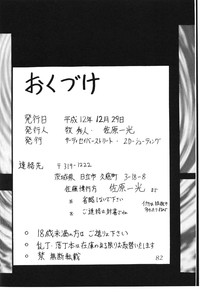 おくづけ
発行日 平成12年12月29日
発行人 牧秀人・佐原一光
発行 サーティセイバーストリート・2Dシューティング
連絡先 〒319-1222
茨城県 日立市 久慈町 3-18-8
佐藤 佐原一光 まで
※ 省略しないで下さい
※ ご連絡は封書でのみ
○ 18歳未満の方は ご遠慮下さい
○ 乱丁・落丁本は在庫のある限りお取替いたします
○ 禁 無断転載
82